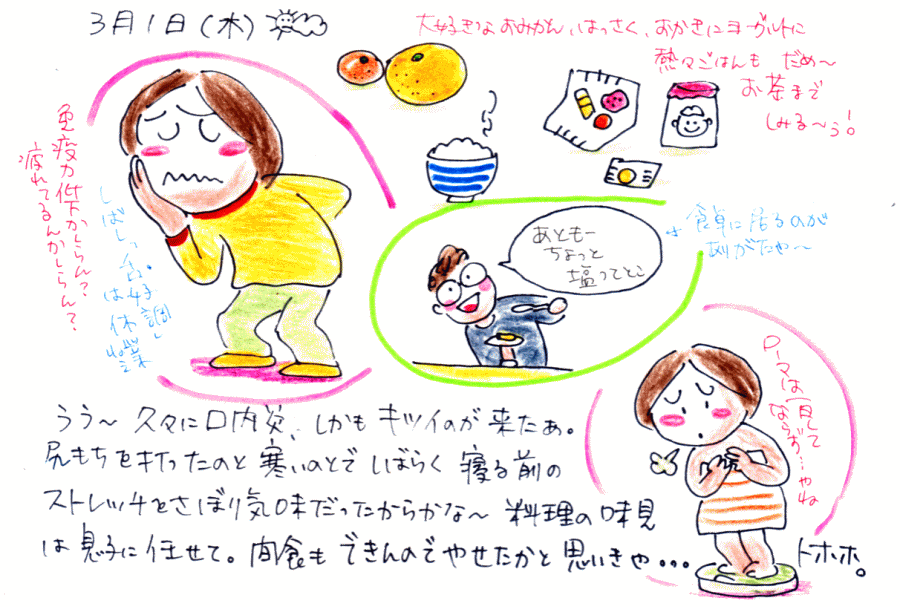 3月1日(木)
大好きなおみかん、はっさく、おかきにヨーグルトに
熱々ごはんも だめ〜
お茶まで
しみる〜ぅ!
免疫力低下かしらん?
疲れてるんかしらん?
しばしっ
は
休業
あともー
ちょっと
塩ってとこ
食卓に居るのが
ありがたや〜
ローマは一日して
ならず…やね
うう〜 久々に口内炎、しかも キツイのが 来たぁ。
尻もちを打ったのと 寒いのとで しばらく 寝る前の
ストレッチをさぼり気味だったからかな〜 料理の味見
は 息子に任せて。間食も できんのでやせたかと思いきや... トホホ。